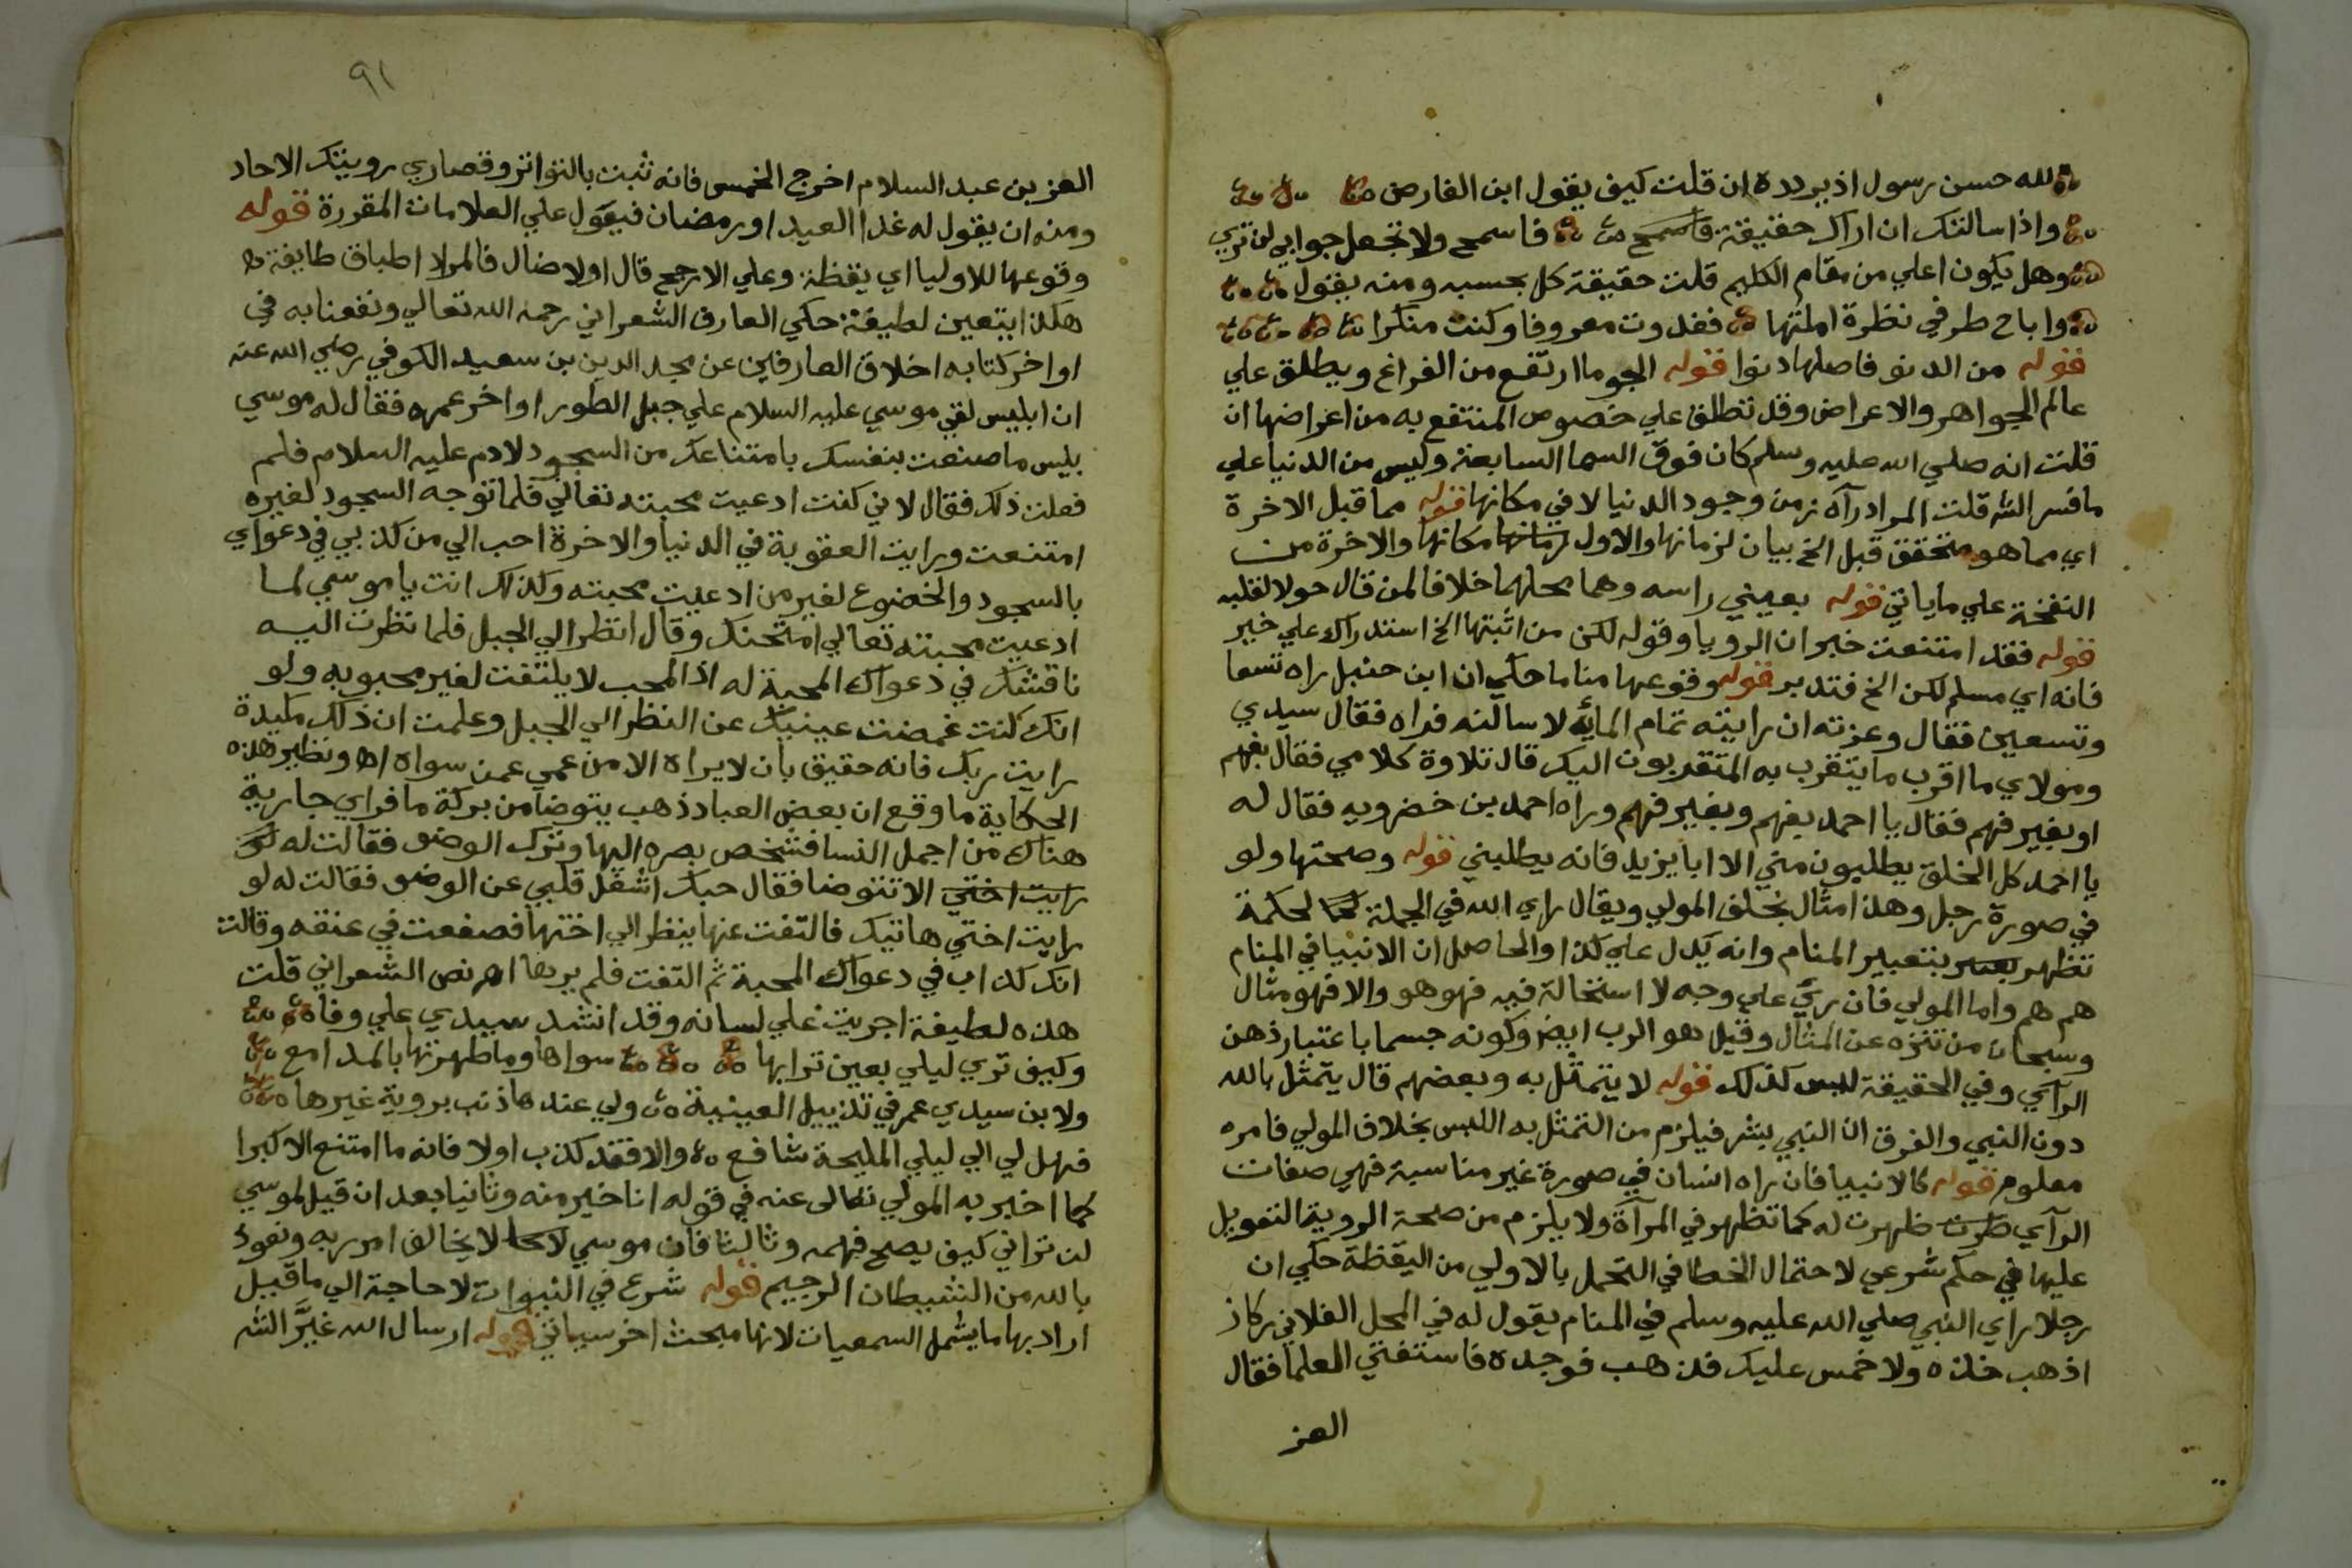 لله حسن رسول اذ يردده ان قلت كيف يقول ابن الفارض
واذا سالتك ان اراك حقيقة فاسمح فاسمح ولا تجعل جوابي لن تري
وهل يكون اعلي من مقام الكليم قلت حقيقة كل بحسبه ومنه يقول
واباح طرفي نظرة املتها فغدوت معروفا وكنت منكرا
قوله من الدنو فاصلها دنوا قوله الجو ما ارتفع من الفراغ ويطلق علي
عالم الجواهر والاعراض وقد تطلق علي خصوص المنتفع به من اعراضها ان
قلت انه صلي الله عليه وسلم كان فوق السما السابعة وليس من الدنيا علي
ما فسر الشه قلت المراد رآه زمن وجود الدنيا لا في مكانها قوله مما قبل الاخرة
اي مما هو متحقق قبل الخ بيان لزمانها والاول زمانها مكانها والاخرة من
النفخة علي ما ياتي قوله بعيني راسه وهما محلهما خلافا لمن قال حولا لقلبه
قوله فقد امتنعت خبر ان الرويا وقوله لكن من اثبتها الخ استدراك علي خبر
فانه اي مسلم لكن الخ فتدبر قوله وقوعها مناما حكي ان ابن حنبل راه تسعا
وتسعين فقال وعزته ان رايته تمام المائة لاسالنه فراه فقال سيدي
ومولاي ما اقرب ما يتقرب به المتقربون اليك قال تلاوة كلامي فقال بفهم
او بغير فهم فقال يا احمد بفهم وبغير فهم وراه احمد بن خضرويه فقال له
يا احمد كل الخلق يطلبون مني الا ابا يزيد فانه يطلبني قوله وصحتها ولو
في صورة رجل وهذا مثال بخلق المولي ويقال راي الله في الجملة كما لحكمة
تظهر بعبير بتعبير المنام وانه يدل علي كذا والحاصل ان الانبيا في المنام
هم هم واما المولي فان ريّ علي وجه لا استحالة فيه فهو هو والا فهو مثال
وسبحان من تنزه عن المثال وقيل هو الرب ايض وكونه جسما باعتبار ذهن
الرآي وفي الحقيقة ليس كذلك قوله لا يتمثل به وبعضهم قال يتمثل بالله
دون النبي والفرق ان النبي بشر فيلزم من التمثل به اللبس بخلاف المولي فامره
معلوم قوله كالانبيا فان راه انسان في صورة غير مناسبة فهي صفات
الرآي طرت ظهرت له كما تظهر في المرآة ولا يلزم من صحة الروية التعويل
عليها في حكم شرعي لاحتمال الخطا في التحمل بالاولي من اليقظة حكي ان
رجلا راي النبي صلي الله عليه وسلم في المنام يقول له في المحل الفلاني ركاز
اذهب خذه ولا خمس عليك فذهب فوجده فاستفتي العلما فقال
العز
٩١
العز بن عبد السلام اخرج الخمس فانه ثبت بالتواتر وقصاري رويتك الاحاد
ومنه ان يقول له غدا العيد او رمضان فيعول علي العلامات المقررة قوله
وقوعها للاوليا اي يقظة وعلي الارجح قال اولا ضال فالمراد اطباق طايفة
هكذا يتعين لطيفة حكي العارف الشعراني رحمه الله تعالي ونفعنا به في
اواخر كتابه اخلاق العارفين عن مجد الدين بن سعيد الكوفي رضي الله عنه
ان ابليس لقي موسي عليه السلام علي جبل الطور اواخر عمره فقال له موسي
بليس ما صنعت بنفسك بامتناعك من السجود لادم عليه السلام فلم
فعلت ذلك فقال لاني كنت ادعيت محبته تعالي فلما توجه السجود لغيره
امتنعت ورايت العقوبة في الدنيا والاخرة احب الي من كذبي في دعواي
بالسجود والخضوع لغير من ادعيت محبته وكذلك انت يا موسي لما
ادعيت محبته تعالي امتحنك وقال انظر الي الجبل فلما نظرت اليه
ناقشك في دعواك المحبة له اذ المحب لا يلتفت لغير محبوبه ولو
انك كنت غمضت عينيك عن النظر الي الجبل وعلمت ان ذلك مكيدة
رايت ربك فانه حقيق بان لا يراه الا من عمي عمن سواه اه ونظير هذه
الحكاية ما وقع ان بعض العباد ذهب يتوضا من بركة ما فراي جارية
هناك من اجمل النسا فشخص بصره اليها وترك الوضو فقالت له لو
رايت اختي الا تتوضا فقال حبك اشغل قلبي عن الوضو فقالت له لو
رايت اختي هاتيك فالتفت عنها ينظر الي اختها فصفعت في عنقه وقالت
انك كذاب في دعواك المحبة ثم التفت فلم يرها اه نص الشعراني قلت
هذه لطيفة اجريت علي لسانه وقد انشد سيدي علي وفاه
وكيف تري ليلي بعين ترابها سواها وما طهرتها بالمدامع
ولابن سيدي عمر في تذييل العينية ولي عندها ذنب بروية غيرها
فهل لي الي ليلي المليحة شافع والا فقد كذب اولا فانه ما امتنع الا كبرا
كما اخبر به المولي تعالى عنه في قوله انا خير منه وثانيا بعد ان قيل لموسي
لن تراني كيف يصح فهمه وثالثا فان موسي لا يخالف امر ربه ونعوذ
بالله من الشيطان الرجيم قوله شرع في النبوات لا حاجة الي ما قيل
اراد بها ما يشمل السمعيات لانها مبحث اخر سياتي قوله ارسال الله غيَّر الشه